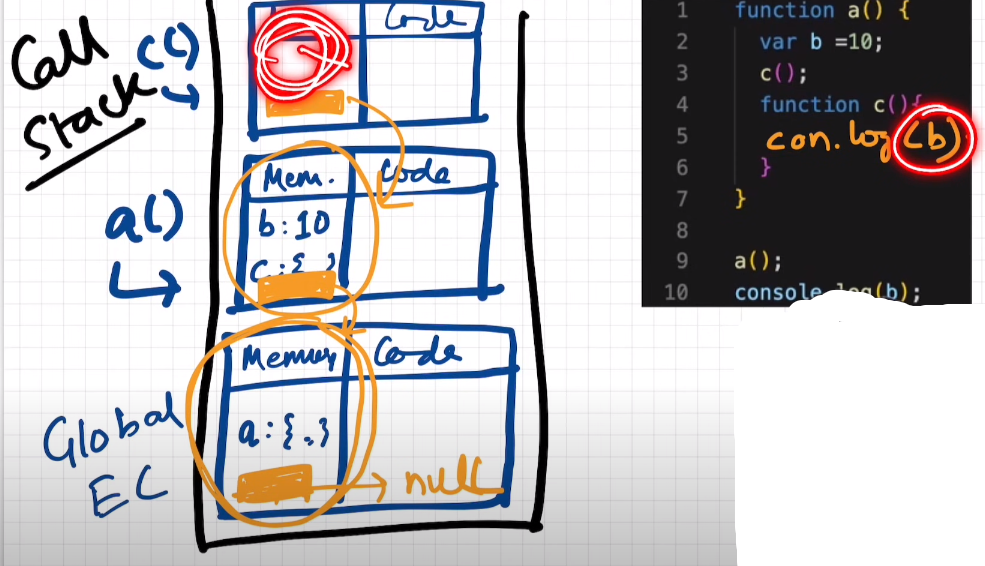 Call
Stack
c()
Code
a()
Mem.
Code
b:10
c:{ }
Global
EC
Memory
Code
a:{.}
null
1 function a() {
2 var b =10;
3 c();
4 function c(){
5 con.log(b)
6 }
7 }
8
9 a();
10 console.log(b);